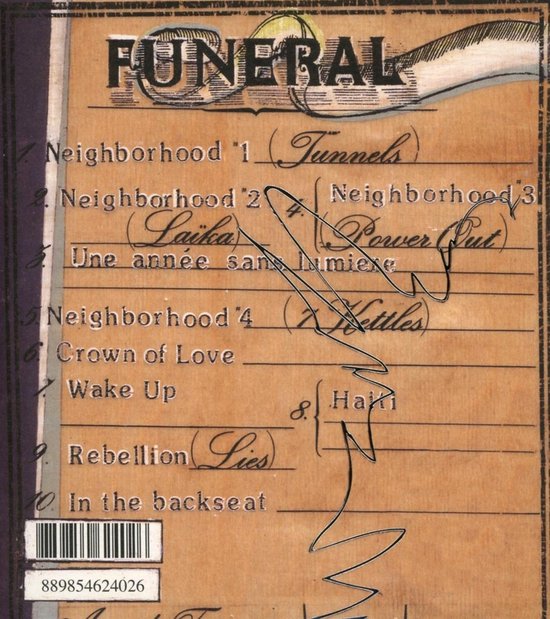 FUNERAL
1. Neighborhood #1 (Tünnels)
2. Neighborhood #2
(Laïka)
3. Une année sans lumiere
4. Neighborhood #3
(Power Out)
5. Neighborhood #4 (7 Kettles)
6. Crown of Love
7. Wake Up
8. Haïti
9. Rebellion (Lies)
10. In the backseat
889854624026